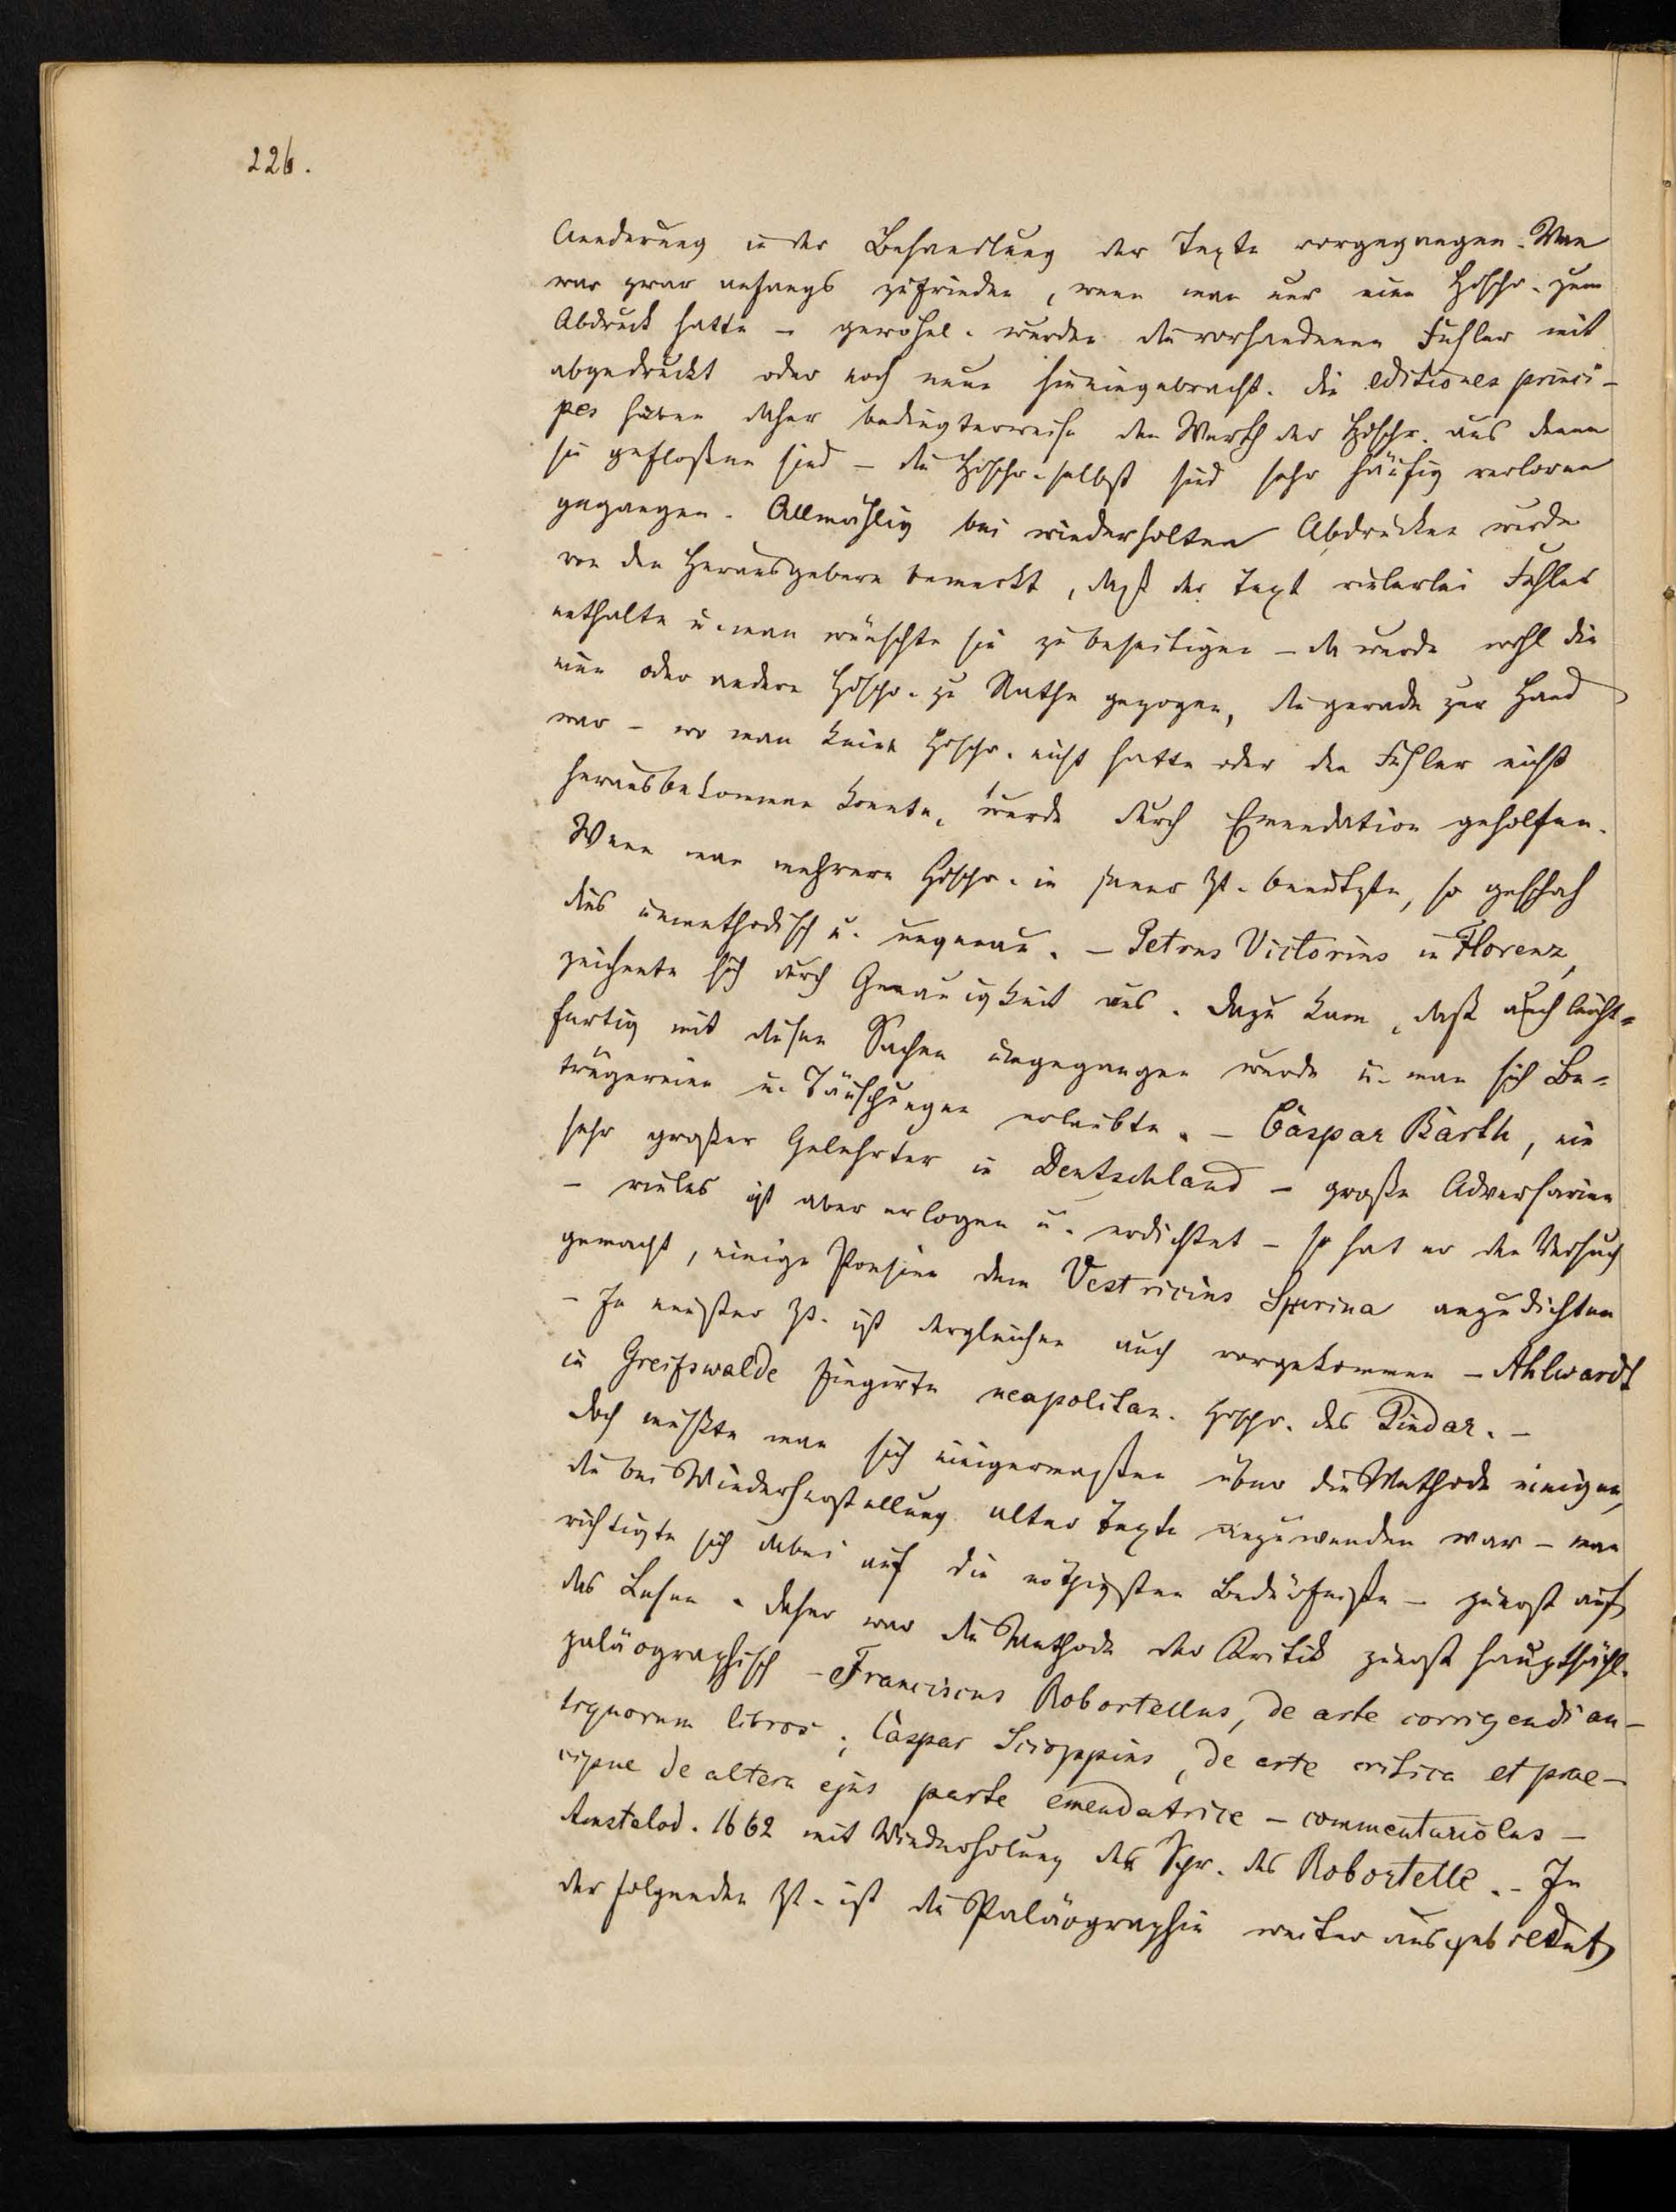 226.
Aenderung in der Behandlung der Texte vorgegangen. Man
war zwar anfangs zufrieden, wenn man nur eine Hdschr. zum
Abdruck hatte – gewöhnl. wurden die vorhandenen Fehler mit
abgedruckt oder noch neue hineingebracht. Die editiones princi-
pes haben daher bedingterweise den Werth der Hdschr. aus denen
sie geflossen sind – die Hdschr. selbst sind sehr häufig verloren
gegangen. Allmählig bei wiederholten Abdrücken wurde
von den Herausgebern bemerkt, daß der Text vielerlei Fehler
enthalte u. man wünschte sie zu beseitigen – da wurde wohl die
eine oder andere Hdschr. zu Rathe gezogen, die gerade zur Hand
war – wo man keine Hdschr. nicht hatte oder den Fehler nicht
herausbekommen konnte, wurde durch Emendation geholfen.
Wenn man mehrere Hdschr. in jener Zt. benützte, so geschah
dies unmethodisch u. ungenau. – Petrus Victorius in Florenz,
zeichnete sich durch Genauigkeit aus. Dazu kam, daß auch leicht=
fertig mit diesen Sachen umgegangen wurde u. man sich Be=
trügereien u. Täuschungen erlaubte. – Caspar Barth, ein
sehr großer Gelehrter in Deutschland – große Adversarien
– vieles ist aber erlogen u. erdichtet – so hat er den Versuch
gemacht, einige Poesien dem Vestricius Spurina anzudichten
– In neuster Zt. ist dergleichen auch vorgekommen – Ahlwardt
in Greifswalde fingirte neapolitan. Hdschr. des Pindar. –
Doch mußte man sich einigermaßen über die Methode einigen,
die bei Wiederherstellung alter Texte anzuwenden war – man
richtigte sich dabei auf die nöthigsten Bedürfniße – zuerst auf
das Lesen. Daher war die Methode der Kritik zuerst hauptsächl.
paläographisch – Franciscus Robortellus, de arte corrigendi an-
tiquorum libros; Caspar Scioppius, de arte critica et prae-
cipue de altera ejus parte emendatrice – commentariolus –
Amstelod. 1662 mit Wiederholung der Schr. des Robortelle. – In
der folgenden Zt. ist die Paläographie weiter ausgebildet